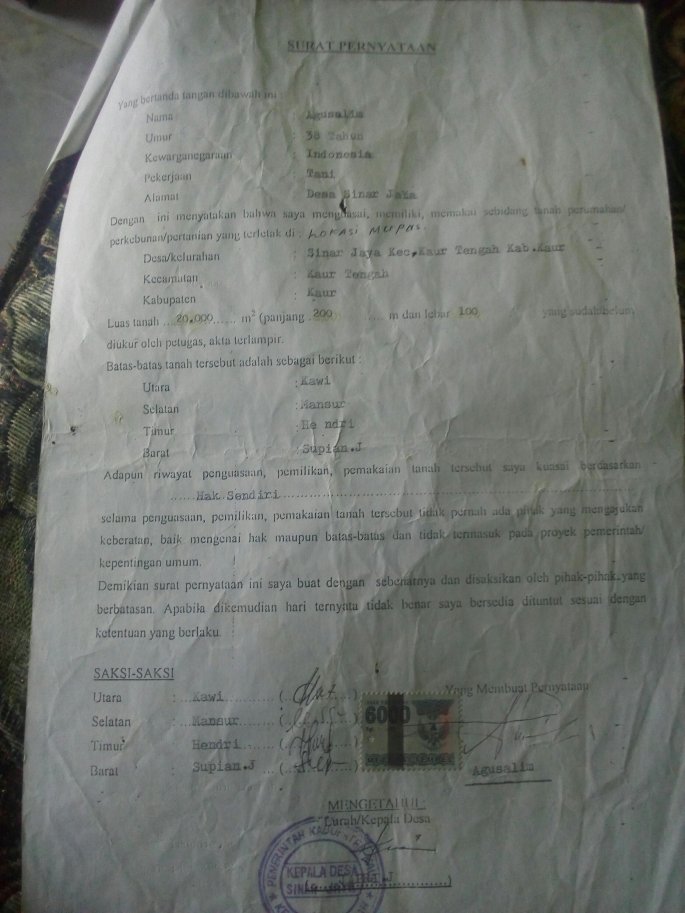 SURAT PERNYATAAN
Yang bertanda tangan dibawah ini :
Nama : Agusalim
Umur : 38 Tahun
Kewarganegaraan : Indonesia
Pekerjaan : Tani
Alamat : Desa Sinar Jaya
Dengan ini menyatakan bahwa saya menguasai, memiliki, memakai sebidang tanah perumahan/
perkebunan/pertanian yang terletak di : LOKASI MUPAS.
Desa/kelurahan : Sinar Jaya Kec,Kaur Tengah Kab.Kaur
Kecamatan : Kaur Tengah
Kabupaten : Kaur
Luas tanah ...20.000...... m² (panjang .200 ...... m dan lebar 100 yang sudah/belum
diukur oleh petugas, akta terlampir.
Batas-batas tanah tersebut adalah sebagai berikut :
Utara : Kawi
Selatan : Mansur
Timur : He ndri
Barat : Supian.J
Adapun riwayat penguasaan, pemilikan, pemakaian tanah tersebut saya kuasai berdasarkan
......Hak Sendiri......
selama penguasaan, pemilikan, pemakaian tanah tersebut tidak pernah ada pihak yang mengajukan
keberatan, baik mengenai hak maupun batas-batas dan tidak termasuk pada proyek pemerintah/
kepentingan umum.
Demikian surat pernyataan ini saya buat dengan sebenarnya dan disaksikan oleh pihak-pihak yang
berbatasan. Apabila dikemudian hari ternyata tidak benar saya bersedia dituntut sesuai dengan
ketentuan yang berlaku.
SAKSI-SAKSI
Yang Membuat Pernyataan
Utara : Kawi
Selatan : Mansur
Timur : Hendri
Barat : Supian.J
6000
Agusalim
MENGETAHUI
Lurah/Kepala Desa
PEMERINTAH KABUPATEN
KEPALA DESA